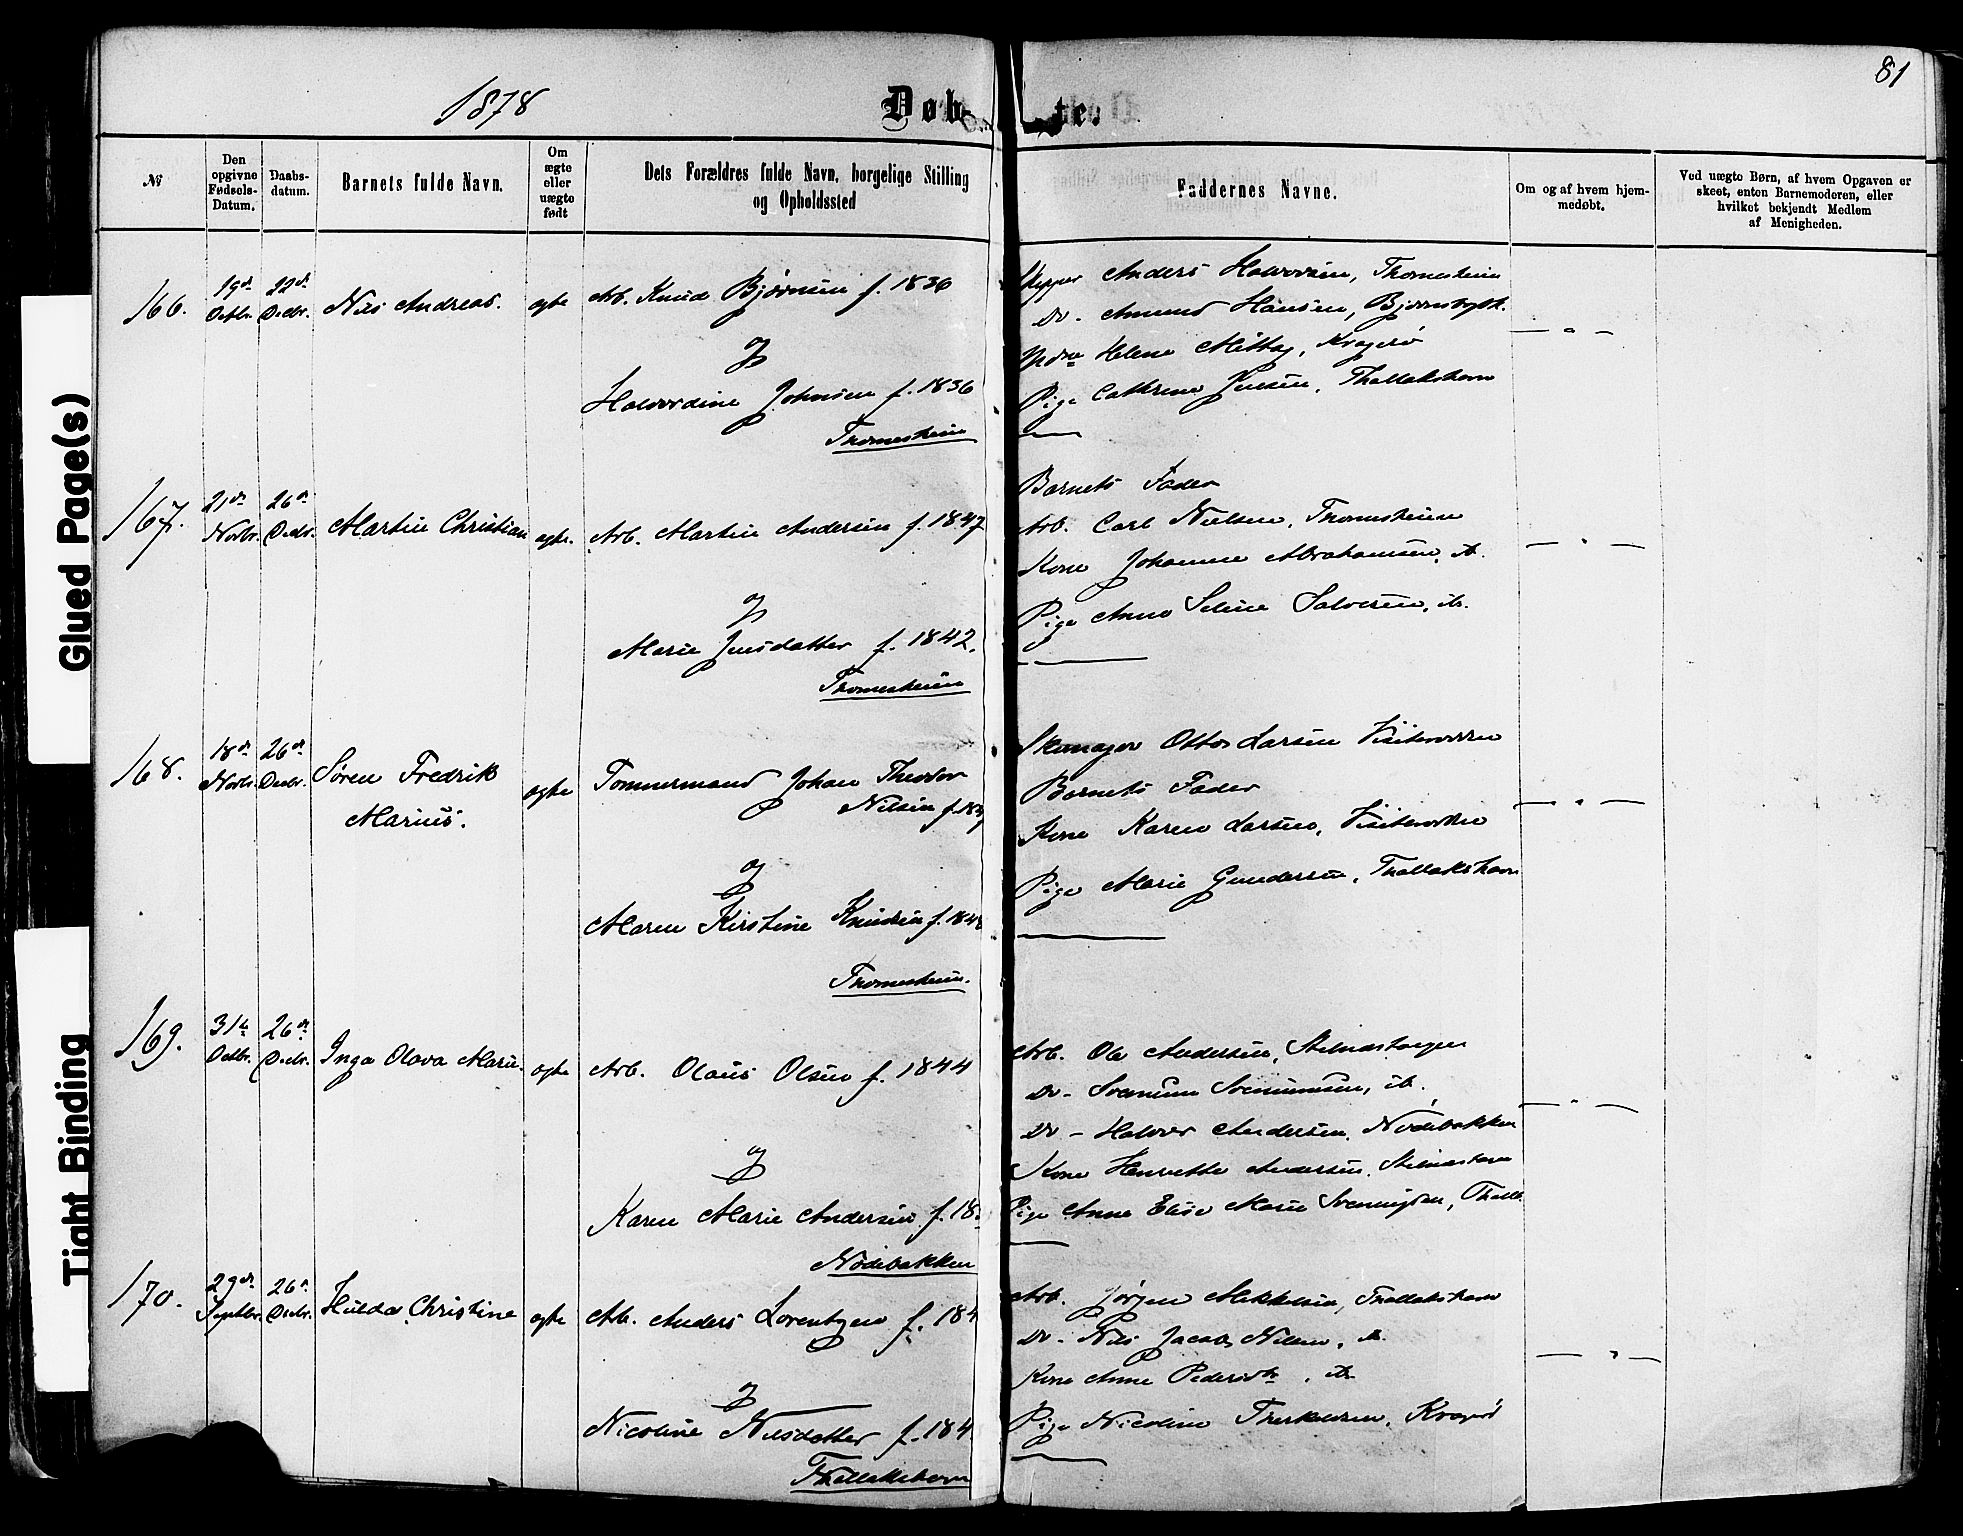 1878
Døb
te.
81
№
Den opgivne Fødsels-Datum.
Daabs-datum.
Barnets fulde Navn.
Om ægte eller uægte født
Dets Forældres fulde Navn, borgelige Stilling og Opholdssted
Faddernes Navne.
Om og af hvem hjem-medøbt.
Ved uægte Børn, af hvem Opgaven er skeet, enten Barnemoderen, eller hvilket bekjendt Medlem af Menigheden.
166.
19de Octbr.
22de Decbr.
Nils Andreas.
ægte
Arb. Knud Bjørnsen f. 1836
og
Halvordine Johnsen f. 1836
Thomesheien
Skipper Anders Halvorsen, Thomesheien
Do. Amund Hansen,
Helene Mittag, Kragerø
Pige Cathrine Jensen, Thallakshavn
167.
21de Novbr.
26de Decbr.
Martin Christian
ægte.
Arb. Martin Andersen f. 1847
og
Marie Jensdatter f. 1842.
Thomesheien
Barnets Fader
Arb. Carl Nielsen, Thomesheien
Kone Johanne Abrahamsen, do.
Pige Anne Seline Salvesen, do.
168.
18de Novbr.
26de Decbr.
Søren Fredrik
Marius.
ægte
Tømmermand Johan Theodor
Nilsen f. 18
og
Maren Kirstine Knudsen f. 184
Thomesheien.
Skomager Otto Larsen
Barnets Fader
Kone Karen Larsen,
Pige Marie Gundersen, Thallakshavn
169.
31te Octbr.
26de Decbr.
Inga Olava Marie.
ægte
Arb. Olaus Olsen f. 1844
og
Karen Marie Andersen f. 18
Nødebakken
Arb. Ole Andersen,
Do - do.
Do - Halvor Andersen, Nødebakken
Kone Henriette Andersen,
Pige Anne Elise Marie Svenningsen, Thall
170.
29de Septbr.
26de Decbr.
Hulda Christine
ægte
Arb. Anders Lorentzen f. 184
og
Nicoline Nilsdatter f. 184
Thallakshavn
Arb. Jørgen Mikkelsen, Thallakshavn
Do. Nils Jacob Nilsen, do.
Kone Anne Pedersdtr, do
Pige Nicoline Therkelsen, Kragerø
Glued Page(s)
Tight Binding